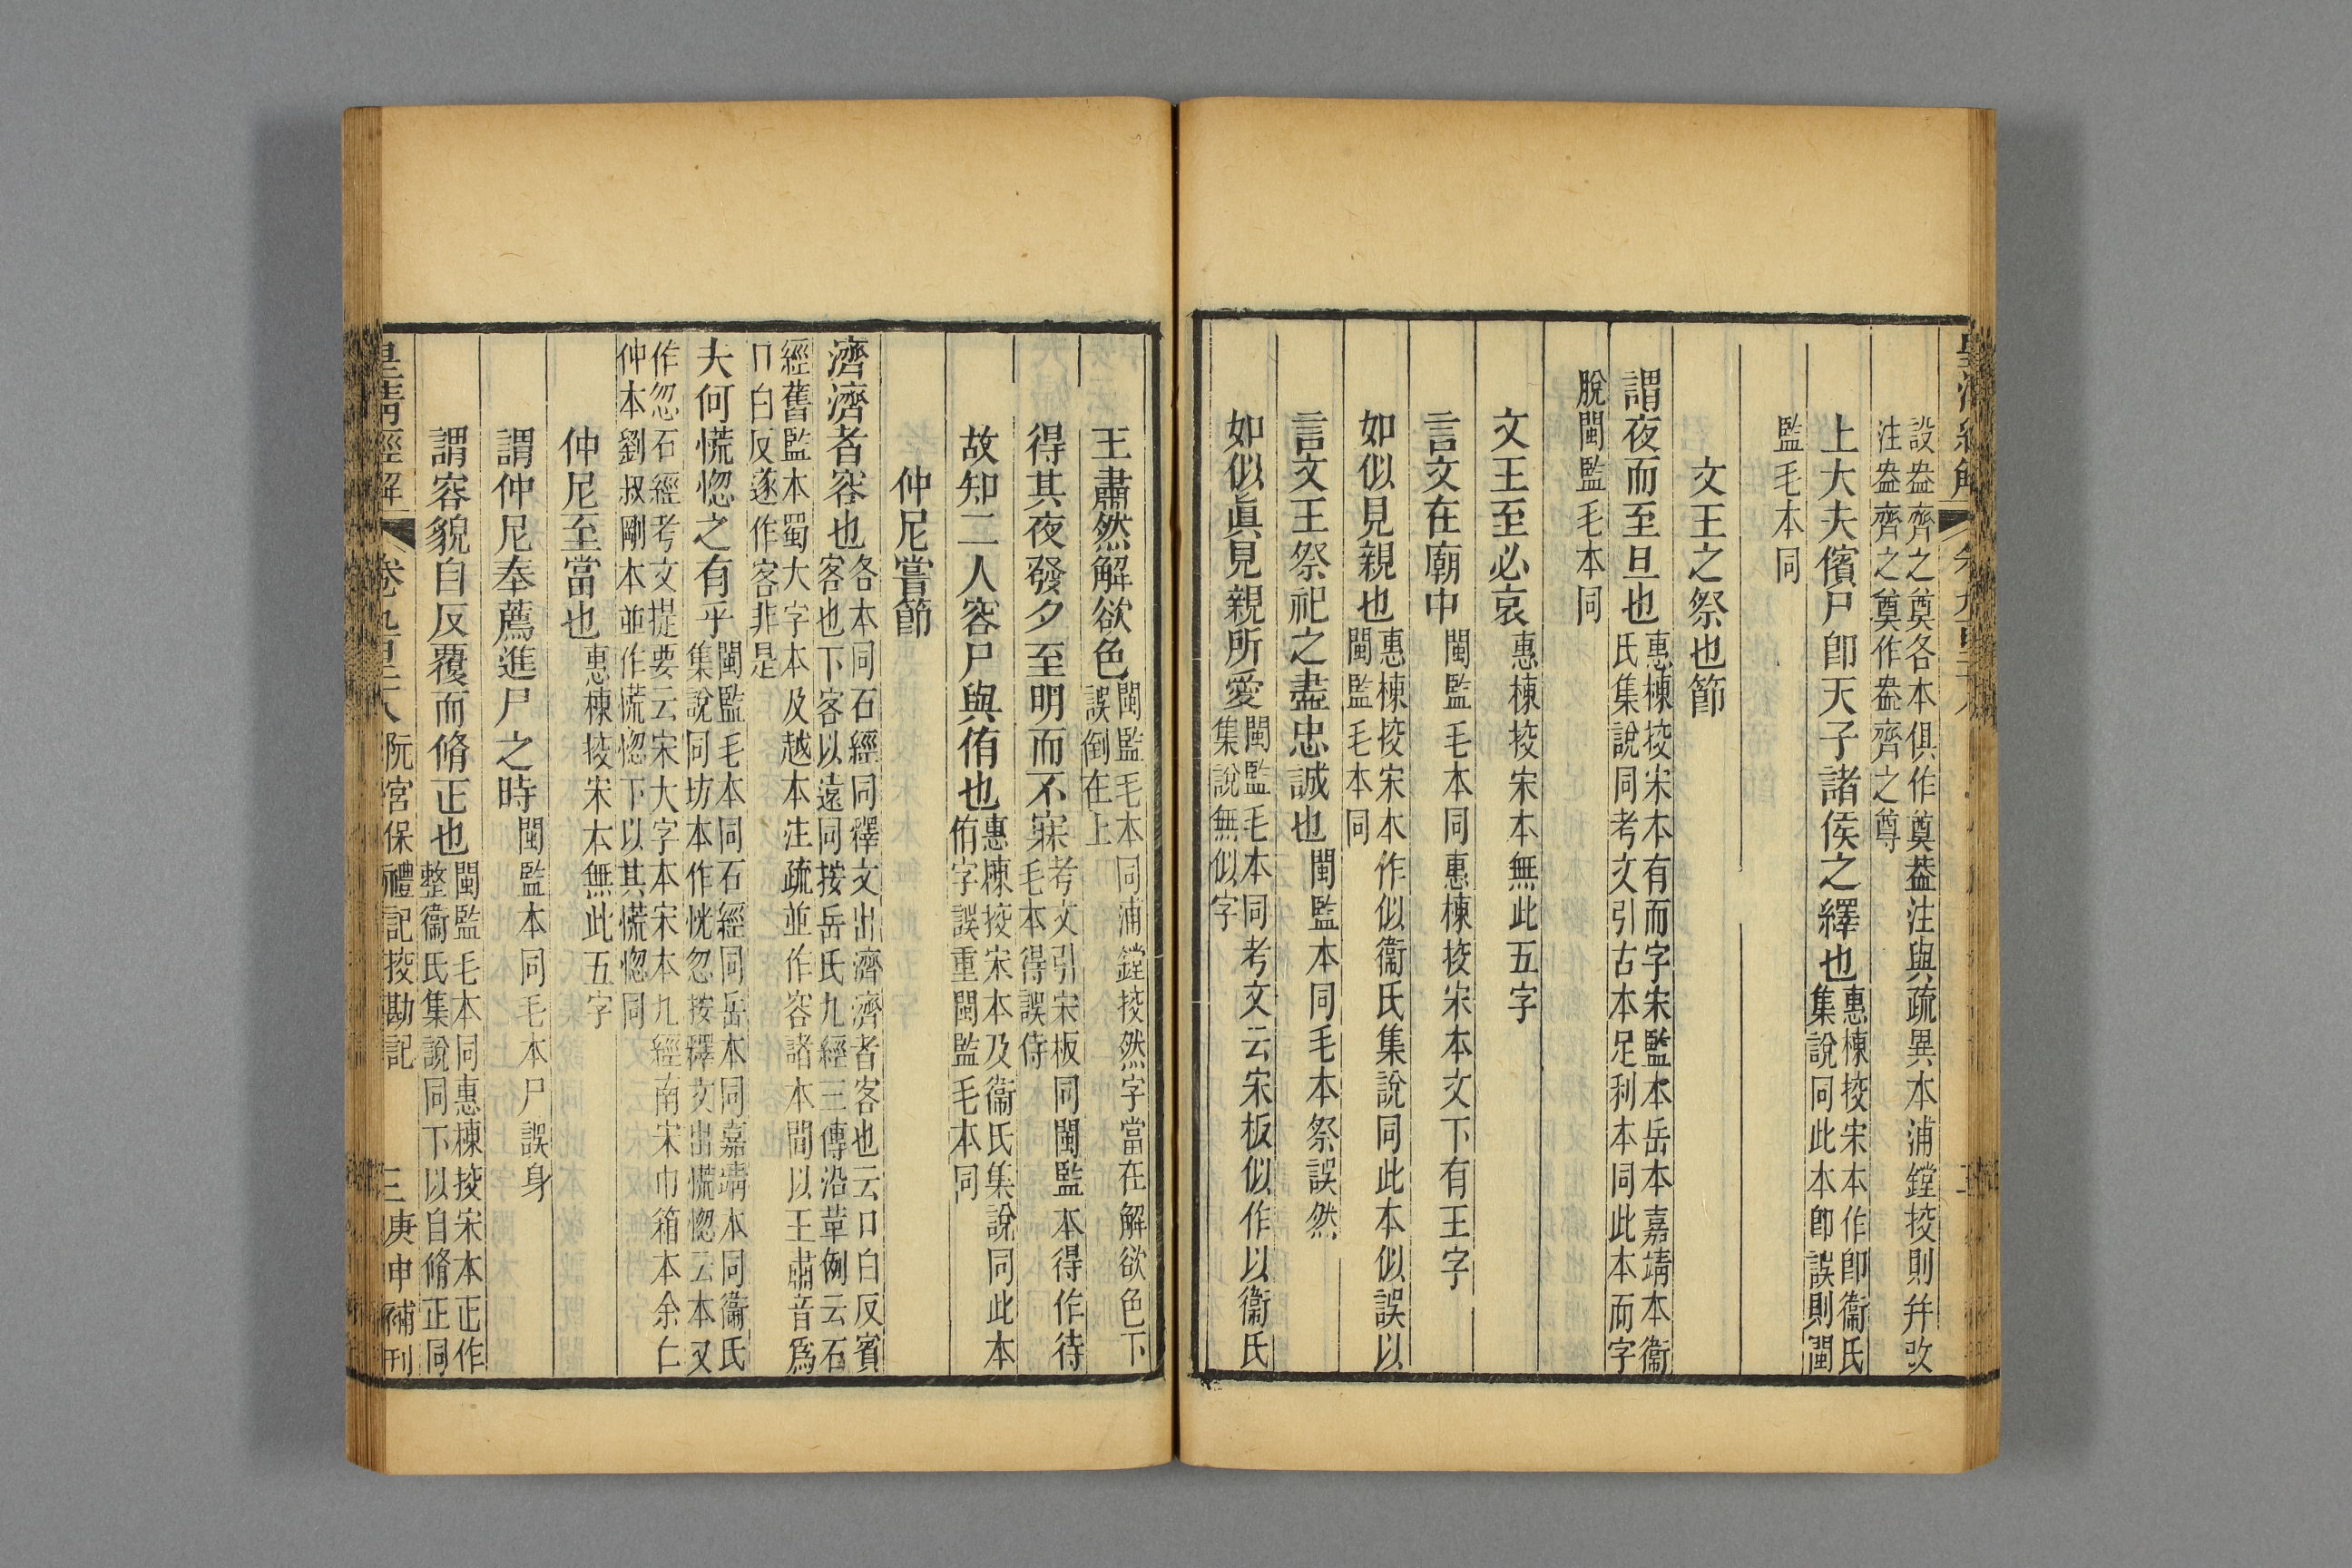 設盎齊之奠各本俱作奠盎注與疏異本浦鏜挍則并改
注盎齊之奠作盎齊之尊
上大夫儐尸卽天子諸侯之繹也惠棟挍宋本作卽衞氏
集說同此本卽誤則閩
監毛本同
文王之祭也節
謂夜而至旦也惠棟挍宋本有而字宋監本岳本嘉靖本衞
氏集說同考文引古本足利本同此本而字
脫閩監毛本同
文王至必哀惠棟挍宋本無此五字
言文在廟中閩監毛本同惠棟挍宋本文下有王字
如似見親也惠棟挍宋本作似衞氏集說同此本似誤以
閩監毛本同
言文王祭祀之盡忠誠也閩監本同毛本祭誤然
如似眞見親所愛閩監毛本同考文云宋板似作以衞氏
集說無似字
王肅然解欲色閩監毛本同浦鏜挍然字當在解欲色下
誤倒在上
得其夜發夕至明而不寐考文引宋板同閩監本得作待
毛本得誤侍
故知二人容尸與侑也惠棟挍宋本及衞氏集說同此本
侑字誤重閩監毛本同
仲尼嘗節
濟濟者容也各本同石經同釋文出濟濟者客也云口白反賓
客也下客以遠同按岳氏九經三傳沿革例云石
經舊監本蜀大字本及越本注疏並作容諸本間以王肅音爲
口白反遂作客非是
夫何慌惚之有乎閩監毛本同石經同岳本同嘉靖本同衞氏
集說同坊本作恍忽按釋文出慌惚云本又
作忽石經考文提要云宋大字本宋本九經南宋巾箱本余仁
仲本劉叔剛本並作慌惚下以其慌惚同
仲尼至當也惠棟挍宋本無此五字
謂仲尼奉薦進尸之時閩監本同毛本尸誤身
謂容貌自反覆而脩正也閩監毛本同惠棟挍宋本正作
整衞氏集說同下以自脩正同
皇清經解 卷九百二十八 阮宮保禮記挍勘記 三 庚申補刊